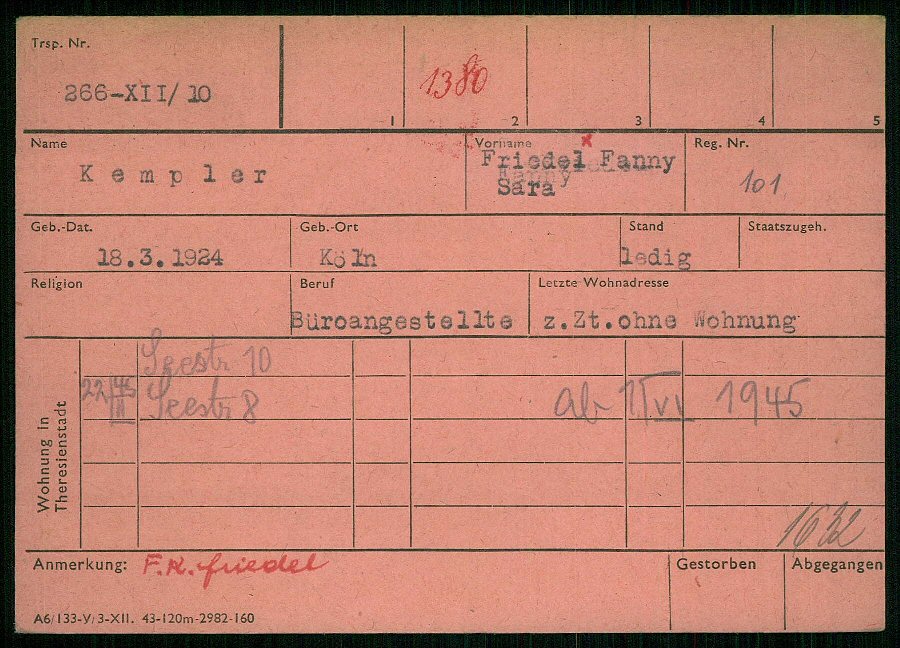 Trsp. Nr.
266-XII/10
1
1380
2
3
4
5
Name
Kempler
Vorname
x
Friedel Fanny
Sara
Reg. Nr.
101
Geb.-Dat.
18.3.1924
Geb.-Ort
Köln
Stand
ledig
Staatszugeh.
Religion
Beruf
Büroangestellte
Letzte Wohnadresse
z.Zt.ohne Wohnung
Wohnung in
Theresienstadt
Seestr 10
22/45
II
Seestr 8
ab 1/VI 1945
1632
Anmerkung: F.K. friedel
Gestorben
Abgegangen
A6/133-У/3-XII. 43-120m-2982-160